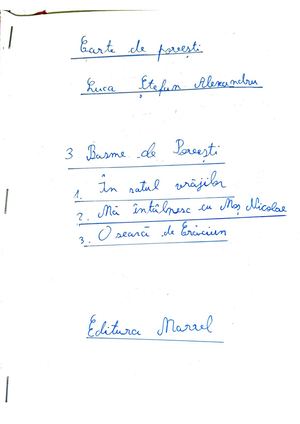 Carte de povești
Luca Ștefan Alexandru
3 Basme de Povești
1. În satul vrăjilor
2. Mă întâlnesc cu Moș Nicolae
3. O seară de Crăciun
Editura Marrel